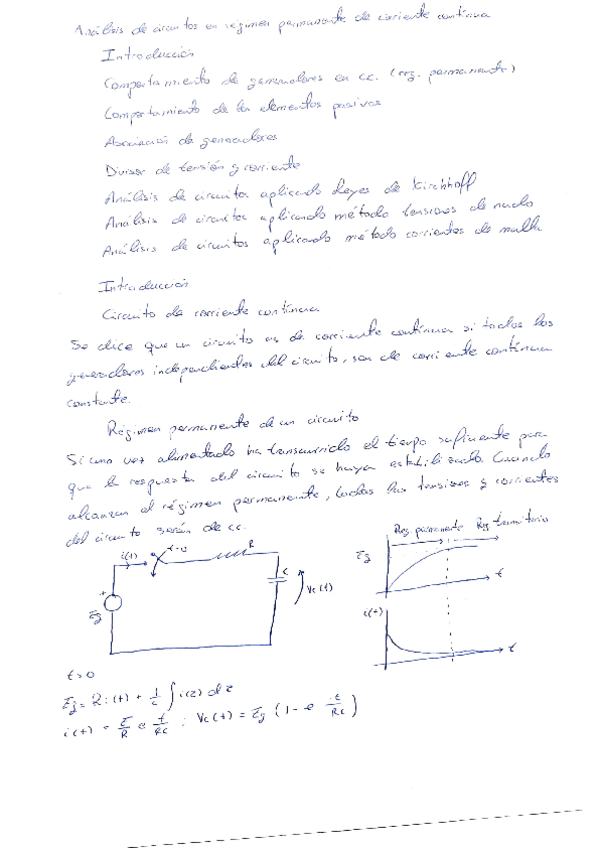 Análisis de circuitos en régimen permanente de corriente continua
Introducción
Comportamiento de generadores en cc. (reg. permanente)
Comportamiento de los elementos pasivos
Asociación de generadores
Divisor de tensión y corriente
Análisis de circuitos aplicando Leyes de Kirchhoff
Análisis de circuitos aplicando método tensiones de nudo
Análisis de circuitos aplicando método corrientes de malla
Introducción
Circuito de corriente continua
Se dice que un circuito es de corriente continua si todos los
generadores independientes del circuito, son de corriente continua
constante.
Régimen permanente de un circuito
Si una vez alimentado ha transcurrido el tiempo suficiente para
que la respuesta del circuito se haya estabilizado. Cuando
alcanzan el régimen permanente, todas las tensiones y corrientes
del circuito serán de cc.
i(t) t=0 R
+ Eg C Vc(t)
Reg permanente Reg transitorio
Eg t
i(t) t
t>0
Eg = R i(t) + 1/C ∫ i(z) dz
i(t) = E/R e t/RC : Vc(t) = Eg (1 - e t/RC)